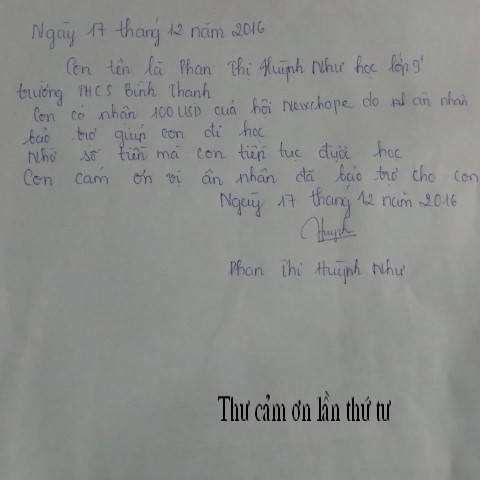 Ngày 17 tháng 12 năm 2016
Con tên là Phan Thị Huỳnh Như học lớp 9
trường THCS Bình Thanh
Con có nhân 100 USD cuả hội Newhope do ân nhân
bảo trợ giúp con đi học
Nhờ số tiền mà con tiếp tục được học
Con cám ơn vi ân nhân đã bảo trợ cho con
Ngày 17 tháng 12 năm 2016
Huỳnh
Phan Thị Huỳnh Như
Thư cảm ơn lần thứ tư